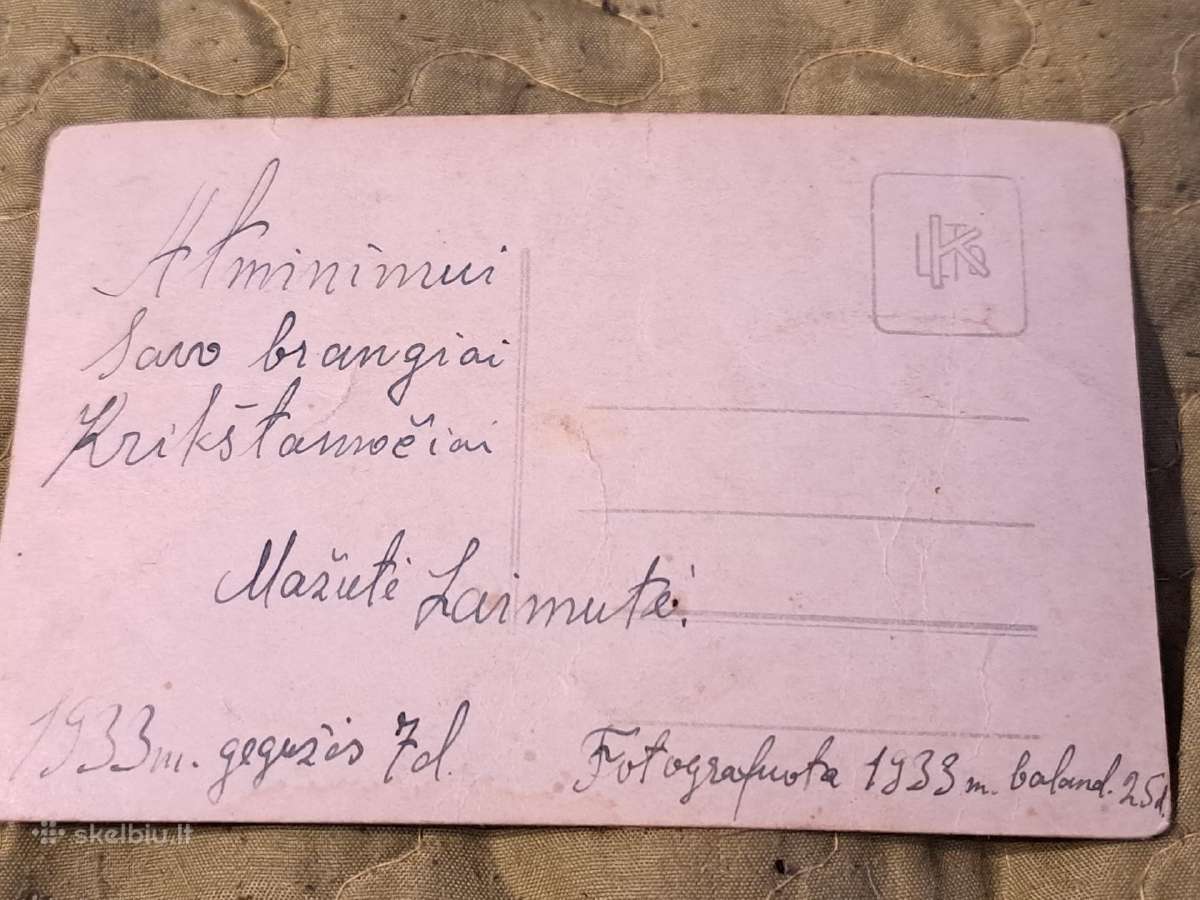 Atminimui
Savo brangiai
Krikštamočiai
Mažutė Laimutė.
1933 m. gegužės 7 d.
Fotografuota 1933 m. baland. 25 d.
skelbiu.lt